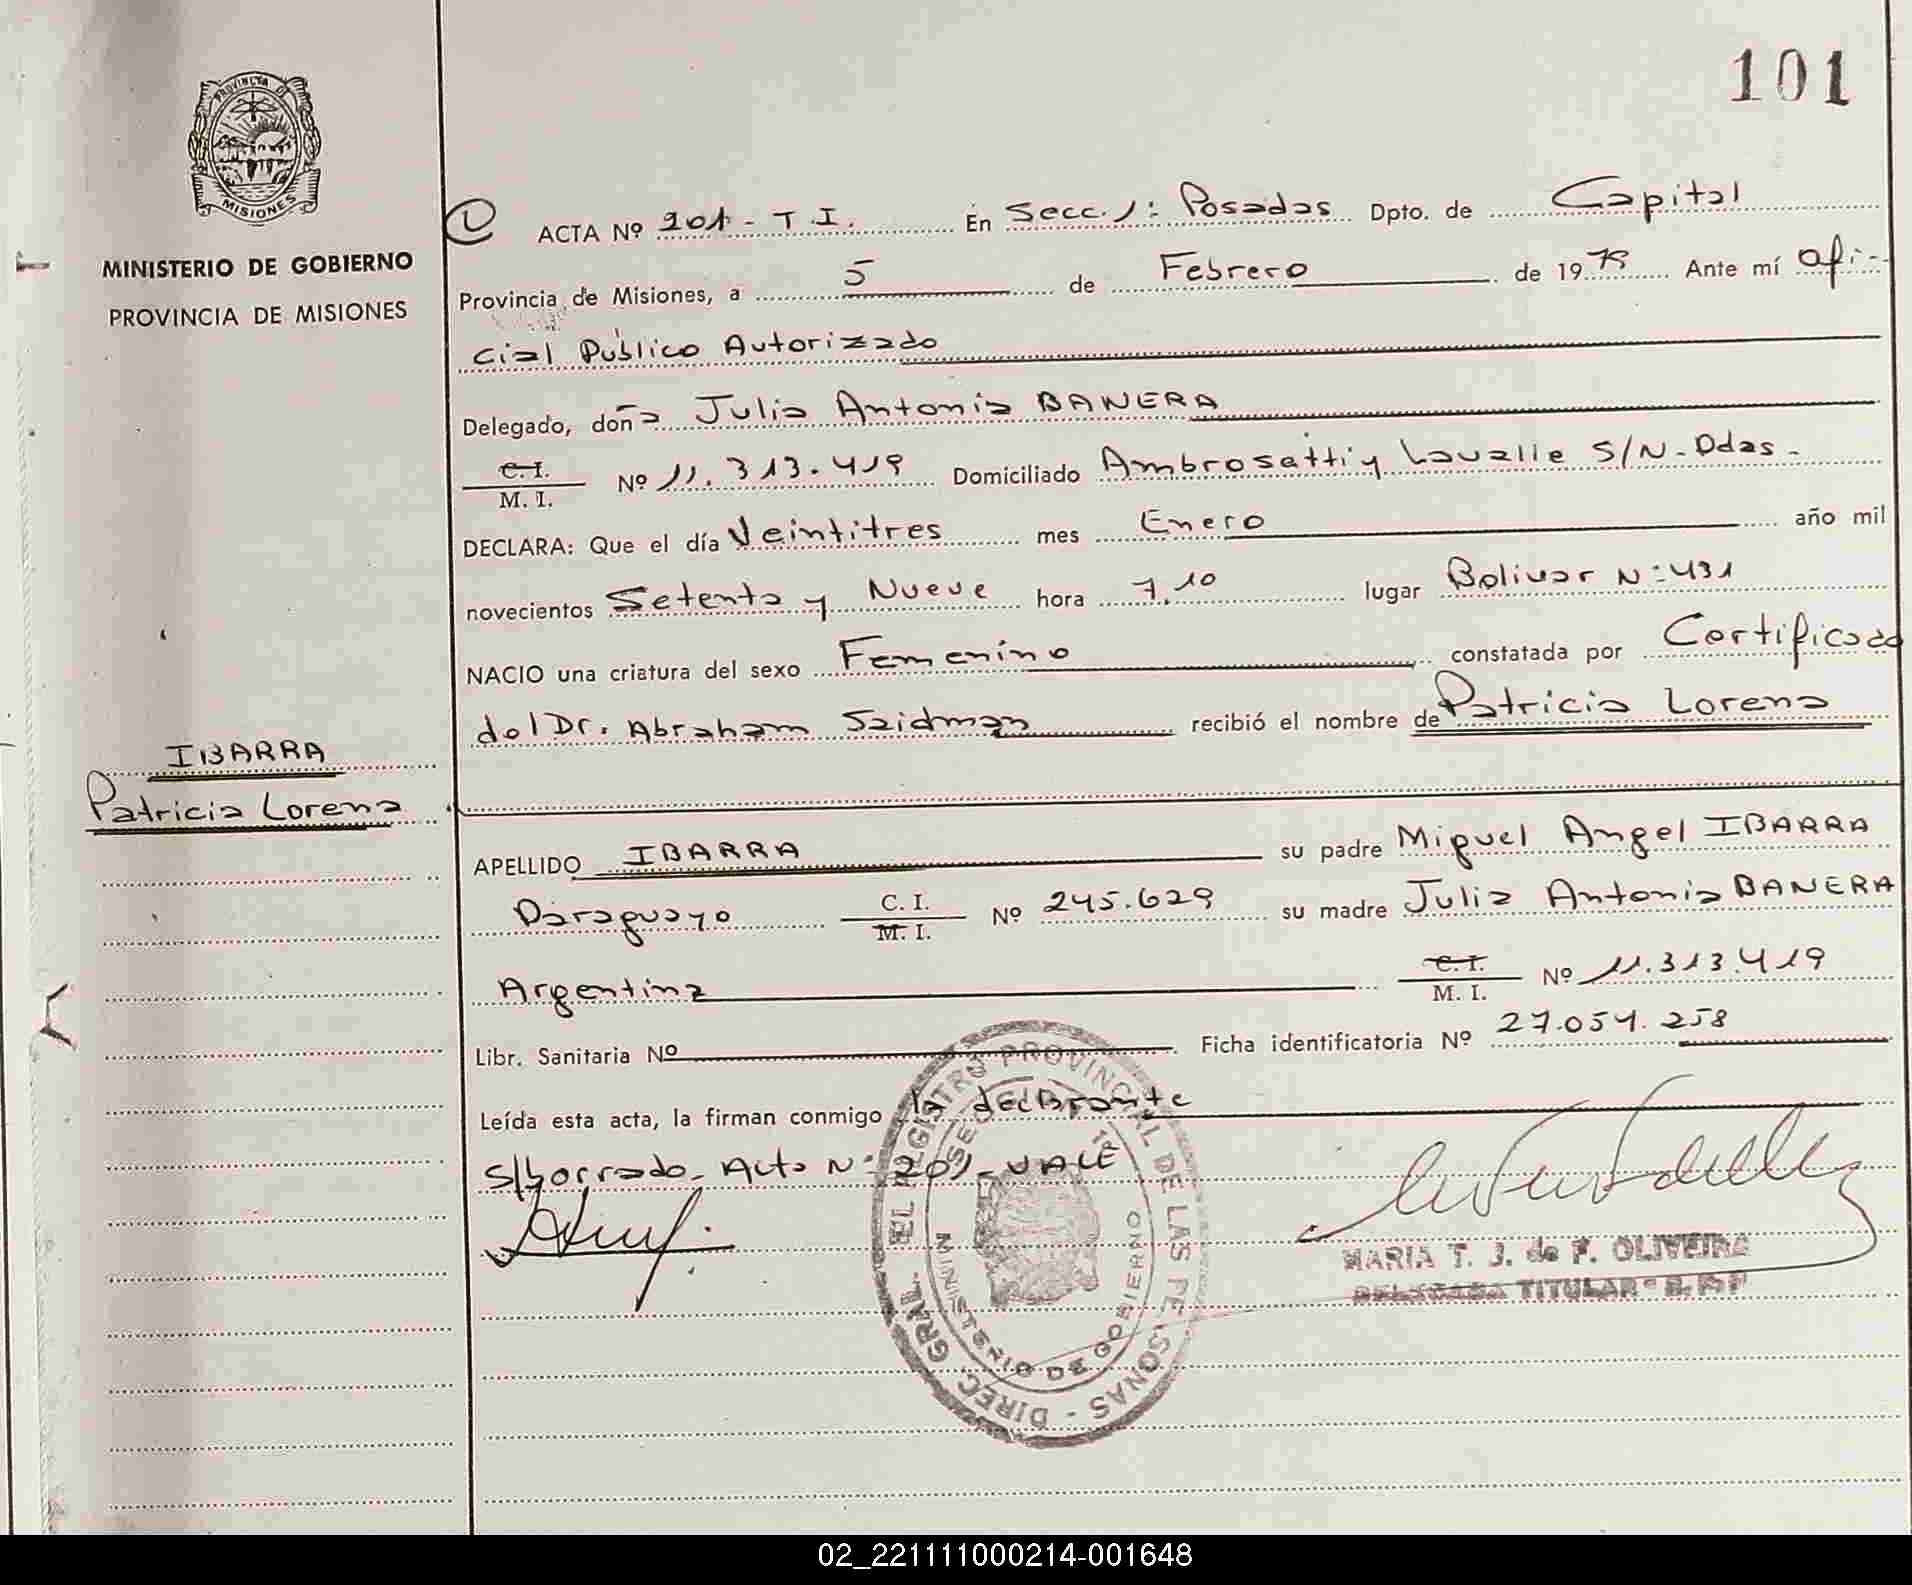 101
PROVINCIA DE
MISIONES
MINISTERIO DE GOBIERNO
PROVINCIA DE MISIONES
IBARRA
Patricia Lorena
ACTA Nº 201 - T.I. En Secc. 1: Posadas Dpto. de Capital
Provincia de Misiones, a 5 de Febrero de 1979 Ante mí Ofi-
cial Público Autorizado
Delegado, doña Julia Antonia BANERA
C.I.
M. I. Nº 11.313.419 Domiciliado Ambrosetti y Lavalle S/N-Pdas.-
DECLARA: Que el día Veintitres mes Enero año mil
novecientos Setenta y Nueve hora 7,10 lugar Bolivar Nº 431
NACIO una criatura del sexo Femenino constatada por Certificado
del Dr. Abraham Szidman recibió el nombre de Patricia Lorena
APELLIDO IBARRA su padre Miguel Angel IBARRA
Paraguayo C. I.
M. I. Nº 245.629 su madre Julia Antonia BANERA
Argentina C. I.
M. I. Nº 11.313.419
Libr. Sanitaria Nº Ficha identificatoria Nº 27.054.258
Leída esta acta, la firman conmigo la declarante
s/borrado- Acta Nº 201- VALE
DIREC. GRAL. DEL REGISTRO PROVINCIAL DE LAS PERSONAS -
MINISTERIO DE GOBIERNO
MARIA T. J. de F. OLIVEIRA
DELEGADA TITULAR
02_221111000214-001648